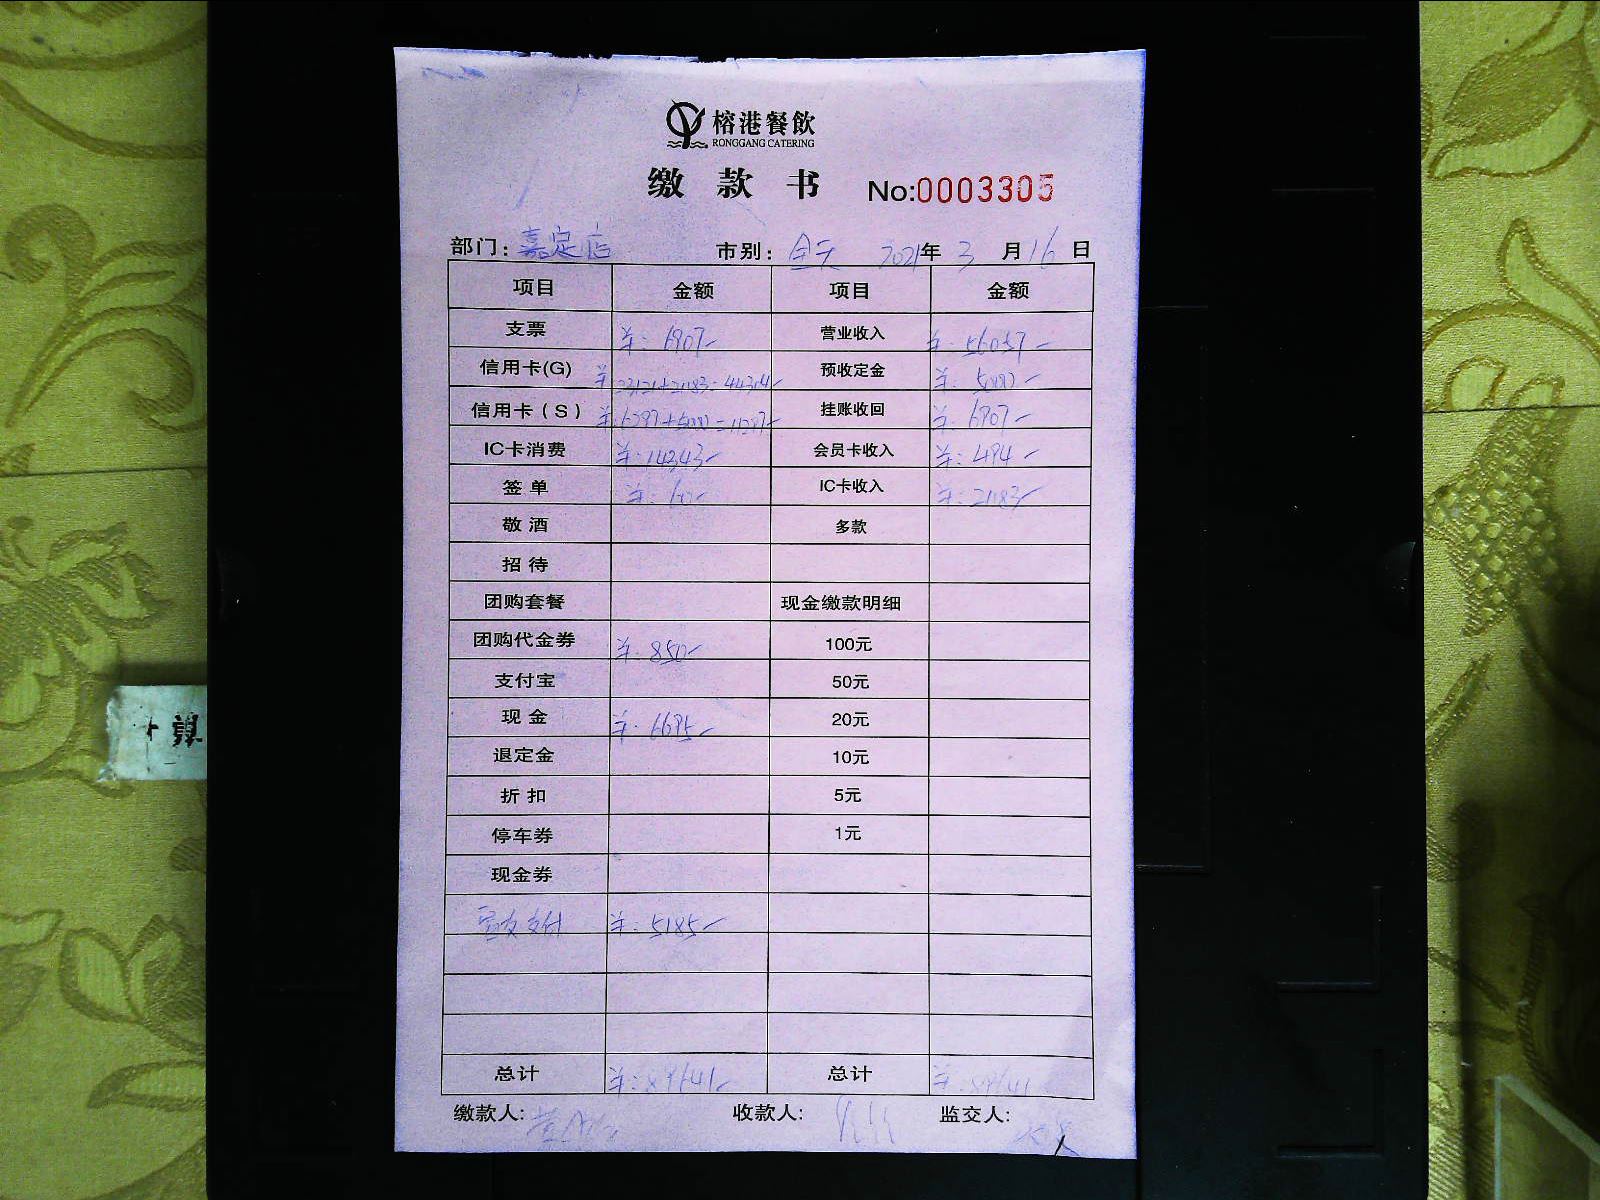 榕港餐飲
RONGGANG CATERING
缴款书 No:0003305
部门: 嘉定店 市别: 全天 2021年 3 月 16 日
项目 金额 项目 金额
支票 ¥: 6907 营业收入 ¥: 56057
信用卡(G) ¥: 23121+21183=44304 预收定金 ¥: 5000
信用卡(S) ¥: 6297+5000=11297 挂账收回 ¥: 6907
IC卡消费 ¥: 14343 会员卡收入 ¥: 494
签单 ¥: IC卡收入 ¥: 21183
敬酒 多款
招待
团购套餐 现金缴款明细
团购代金券 ¥: 850 100元
支付宝 50元
现金 ¥: 6695 20元
退定金 10元
折扣 5元
停车券 1元
现金券
支付 ¥: 5185
总计 ¥: 89641 总计 ¥: 89641
缴款人: 收款人: 监交人: